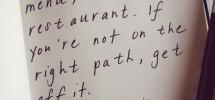 menu,
restaurant. If
you're not on the
right path, get
off it.